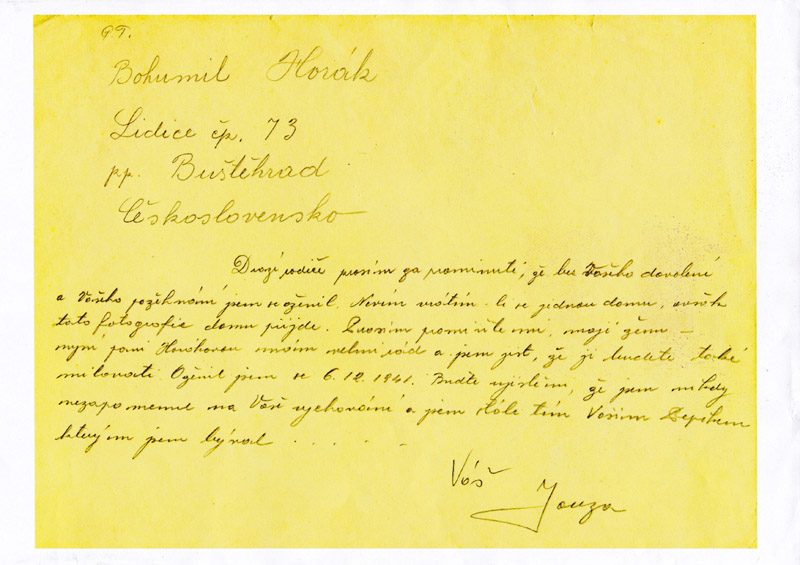 G.T.
Bohumil Horák
Lidice čp. 73
pp. Buštěhrad
Československo
Drazí rodiče prosím za prominutí, že bez Vašeho dovolení
a Vašeho požehnání jsem se oženil. Nevím vrátím-li se jednou domů, avšak
tato fotografie domů přijde. Prosím promiňte mi, moji ženu –
nyní paní Horákovou mám velmi rád a jsem jist, že ji budete také
milovati. Oženil jsem se 6.12.1941. Buďte ujištěni, že jsem nikdy
nezapomenul na Vaše vychování a jsem stále tím Vašim Pepíkem
kterým jsem býval . . . . .
Váš